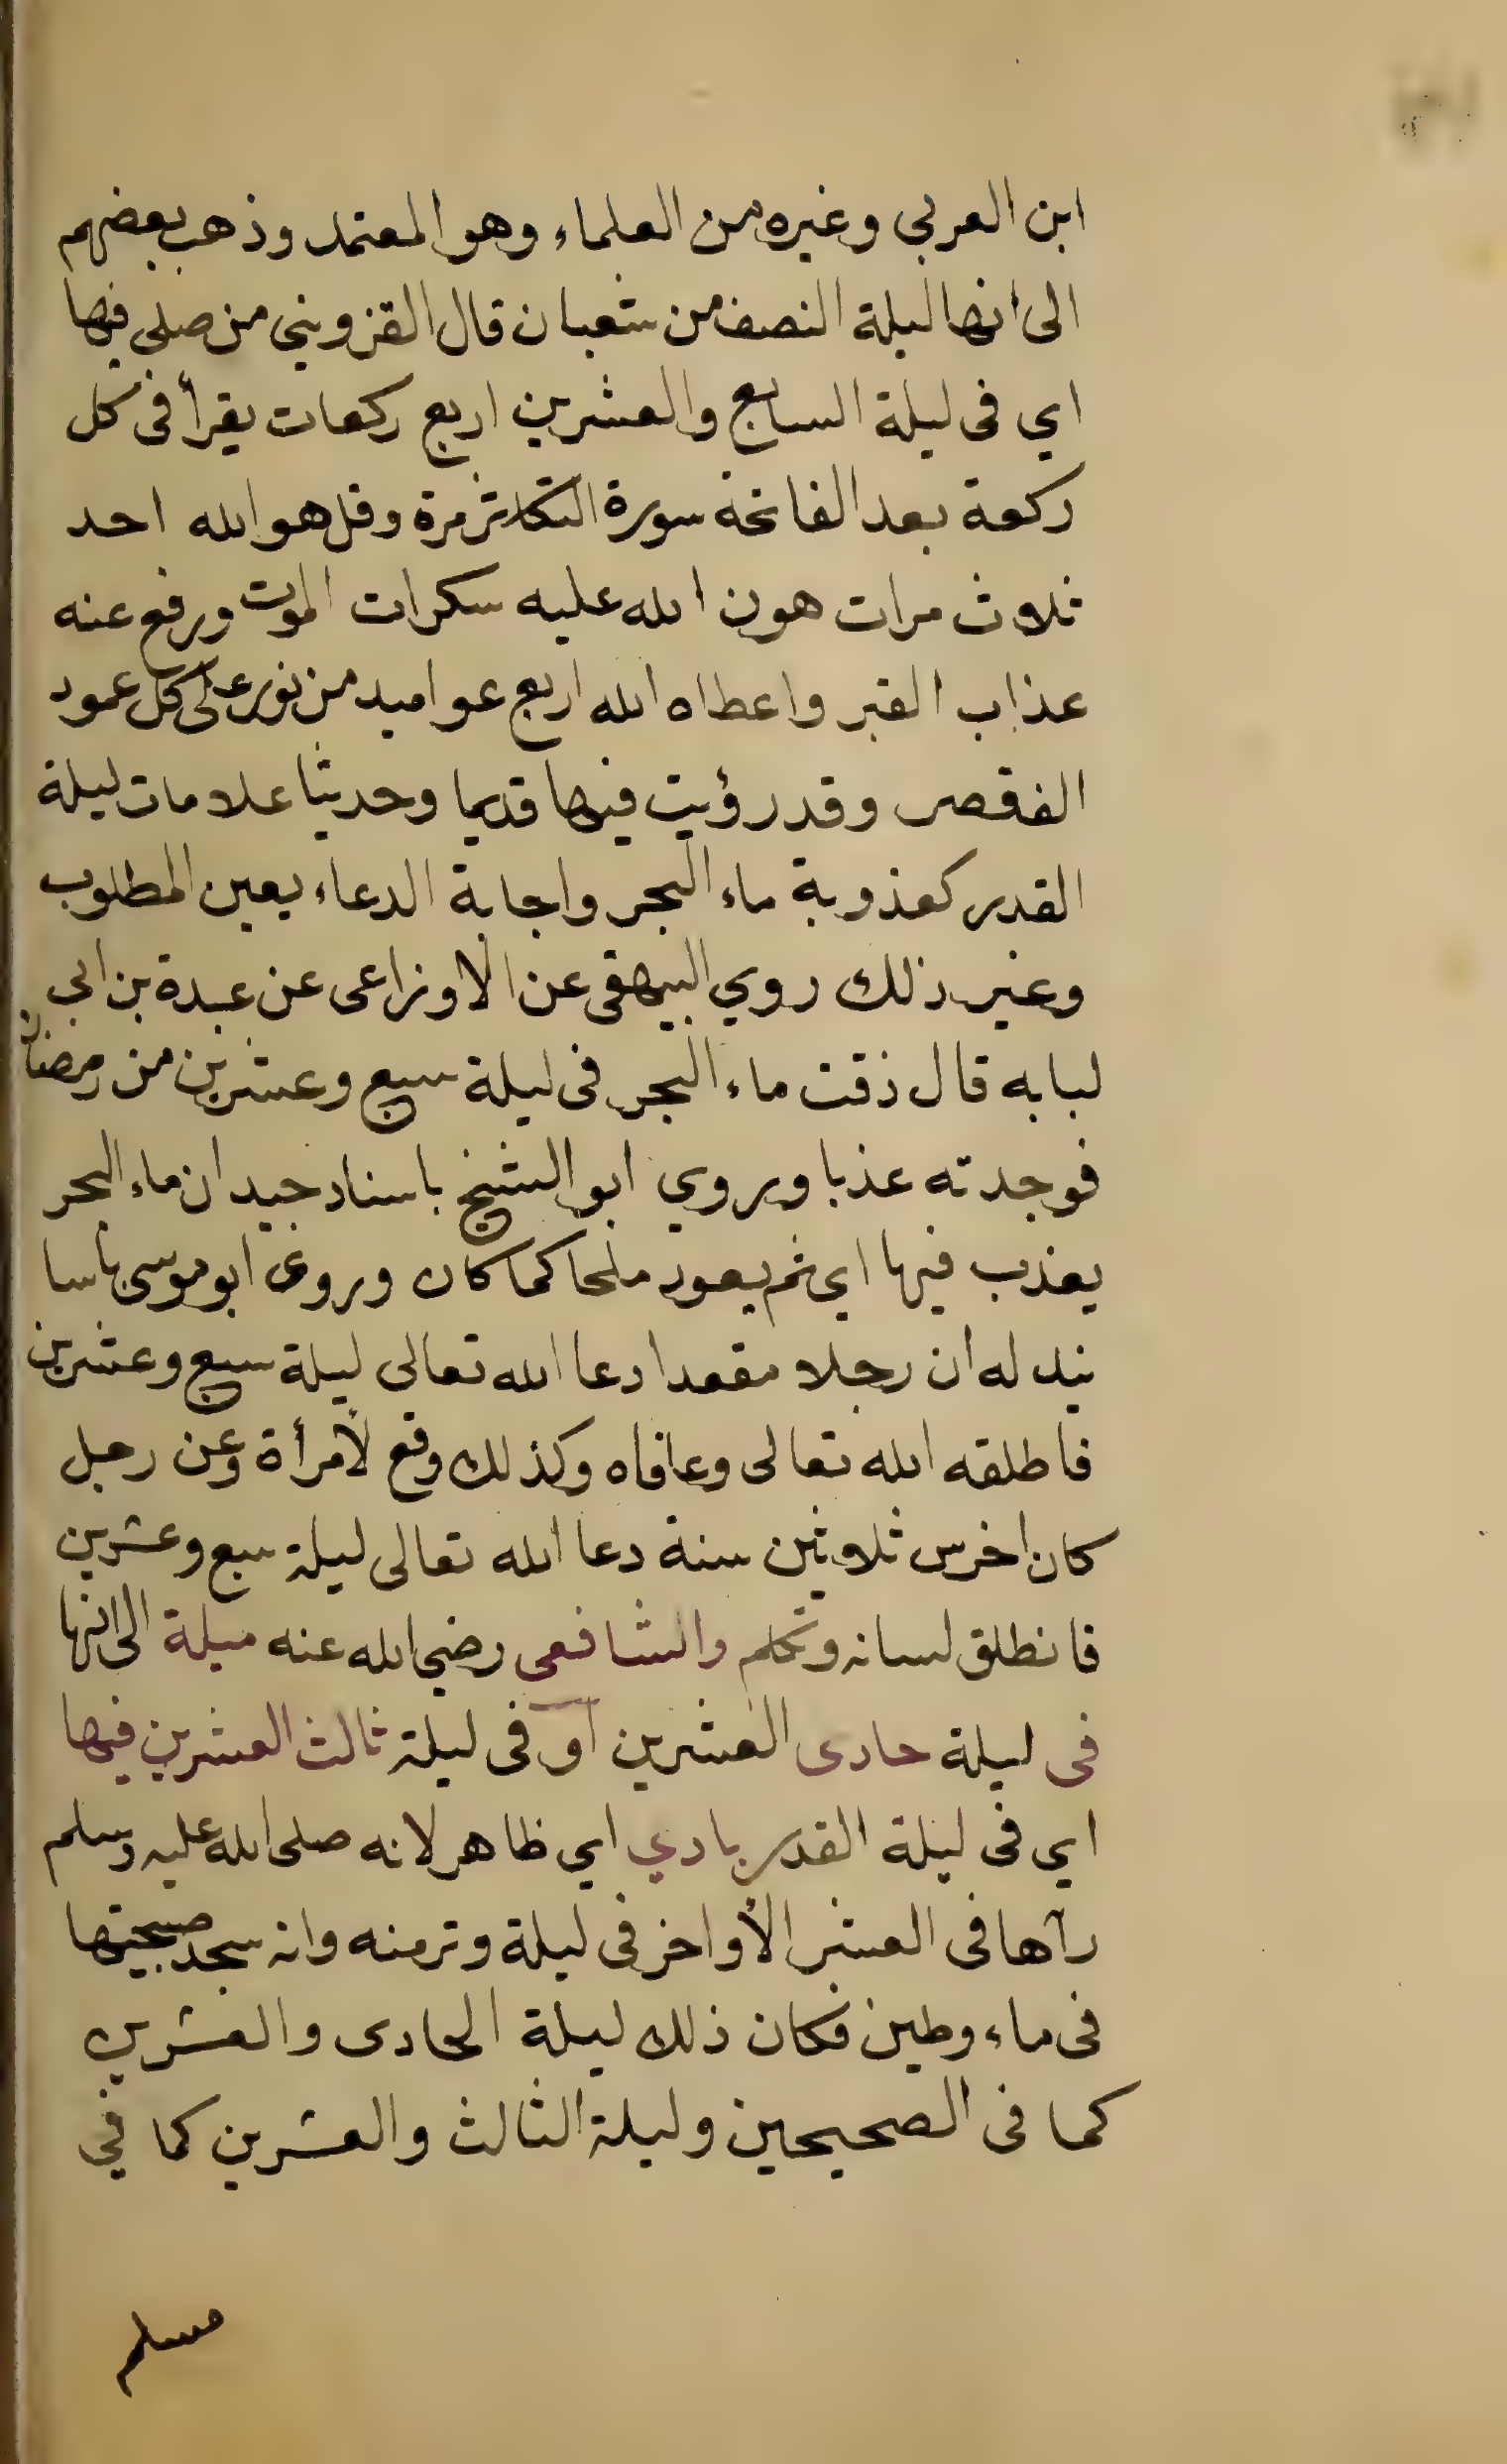 ابن العربي وغيره من العلماء وهو المعتمد وذهب بعضهم
الى أنها ليلة النصف من شعبان قال القزويني من صلى فيها
اي فى ليلة السابع والعشرين اربع ركعات يقرأ فى كل
ركعة بعد الفاتحة سورة التكاثر مرة وقل هو الله احد
ثلاث مرات هون الله عليه سكرات الموت ورفع عنه
عذاب القبر واعطاه الله اربع عواميد من نور على كل عمود
الف قصر وقد رؤيت فيها قديما وحديثا علامات ليلة
القدر كعذوبة ماء البحر واجابة الدعاء بعين المطلوب
وغير ذلك روي البيهقى عن الاوزاعى عن عبدة بن ابي
لبابه قال ذقت ماء البحر فى ليلة سبع وعشرين من رمضان
فوجدته عذبا وروي ابو الشيخ باسناد جيد ان ماء البحر
يعذب فيها اي ثم يعود ملحا كما كان وروى ابو موسى باسا
نيد له ان رجلا مقعدا دعا الله تعالى ليلة سبع وعشرين
فاطلقه الله تعالى وعافاه وكذلك وقع لأمرأة وعن رجل
كان اخرس ثلاثين سنة دعا الله تعالى ليلة سبع وعشرين
فانطلق لسانه وتكلم والشافعى رضي الله عنه ميلة الى انها
فى ليلة حادى العشرين أو فى ليلة ثالث العشرين فيها
اي فى ليلة القدر بادي اي ظاهر لانه صلى الله عليه وسلم
رآها فى العشر الأواخر فى ليلة وتر منه وانه سجد صبحيتها
فى ماء وطين فكان ذلك ليلة الحادى والعشرين
كما فى الصحيحين وليلة الثالث والعشرين كما في
مسلم